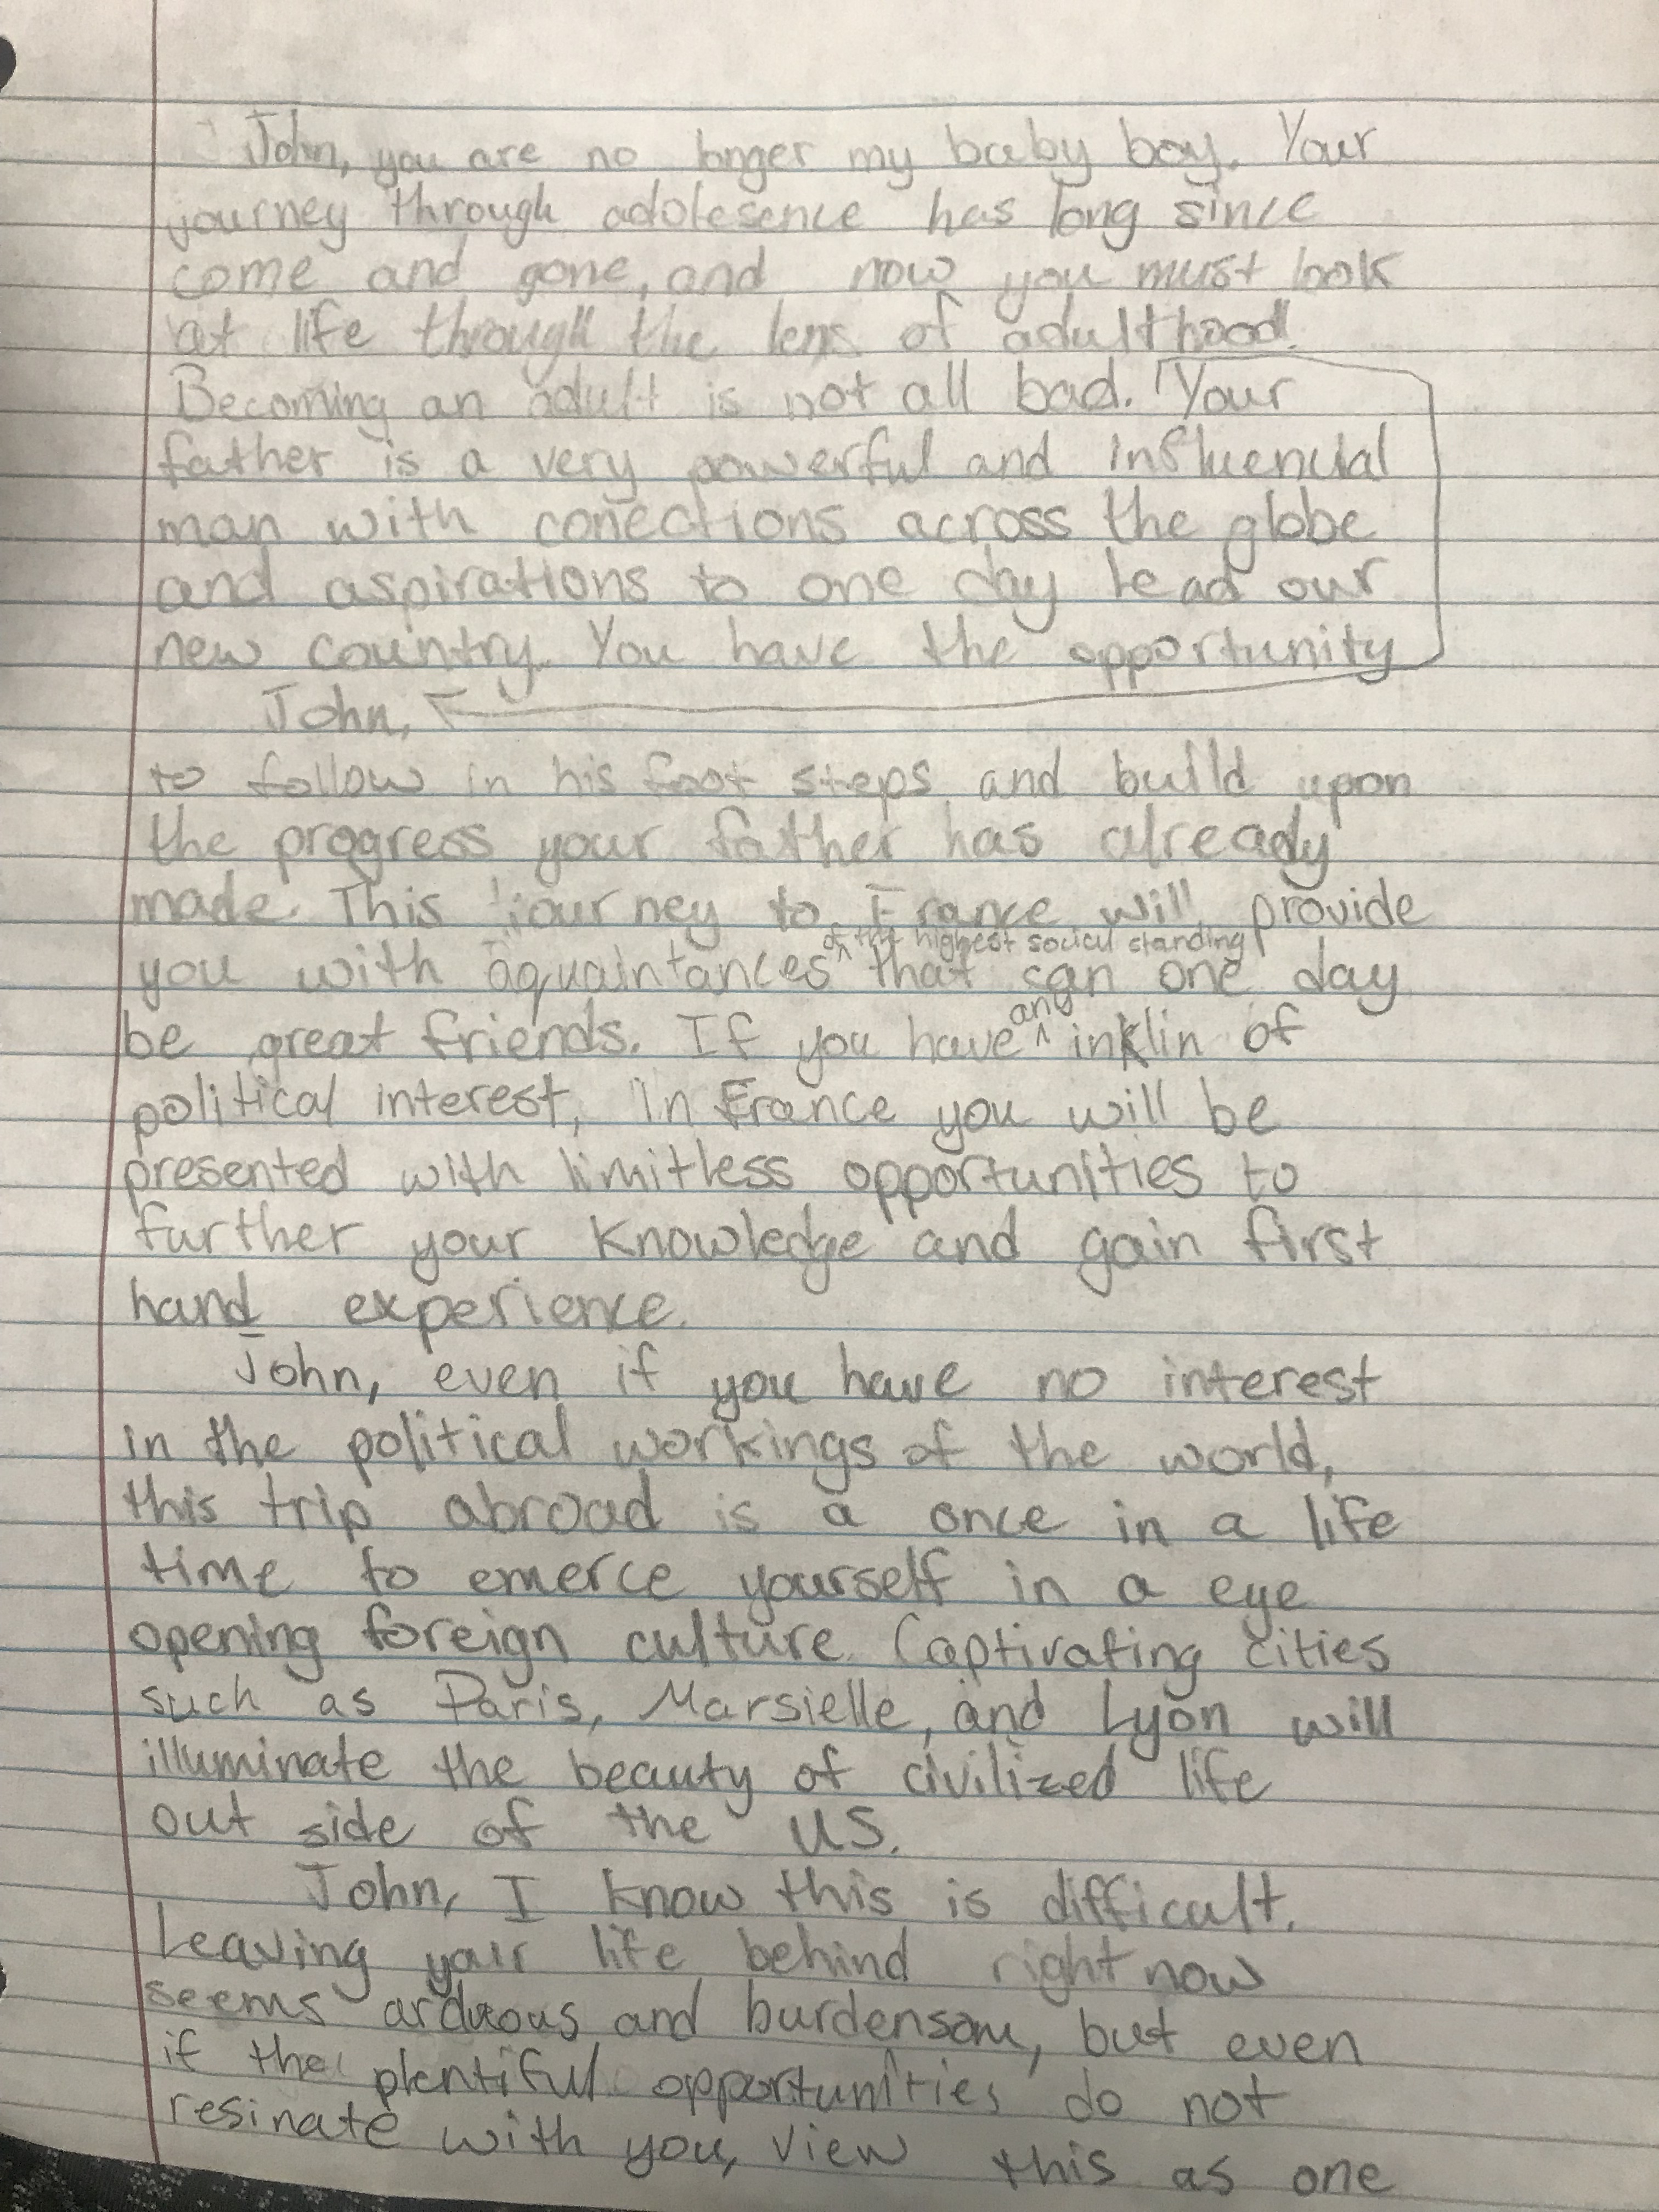 John, you are no longer my baby boy. Your
journey through adolesence has long since
come and gone, and now you must look
at life through the lens of adulthood.
Becoming an adult is not all bad. Your
father is a very powerful and influencial
man with conections across the globe
and aspirations to one day lead our
new country. You have the opportunity
John,
to follow in his foot steps and build upon
the progress your father has already
made. This journey to France will provide
of the highest social standing
you with aquaintances that can one day
any
be great friends. If you have inklin of
political interest, in France you will be
presented with limitless opportunities to
further your knowledge and gain first
hand experience.
John, even if you have no interest
in the political workings of the world,
this trip abroad is a once in a life
time to emerce yourself in a eye
opening foreign culture. Captivating cities
such as Paris, Marsielle, and Lyon will
illuminate the beauty of civilized life
out side of the US.
John, I know this is difficult.
Leaving your life behind right now
seems arduous and burdensom, but even
if the plentiful opportunities do not
resinate with you, view this as one